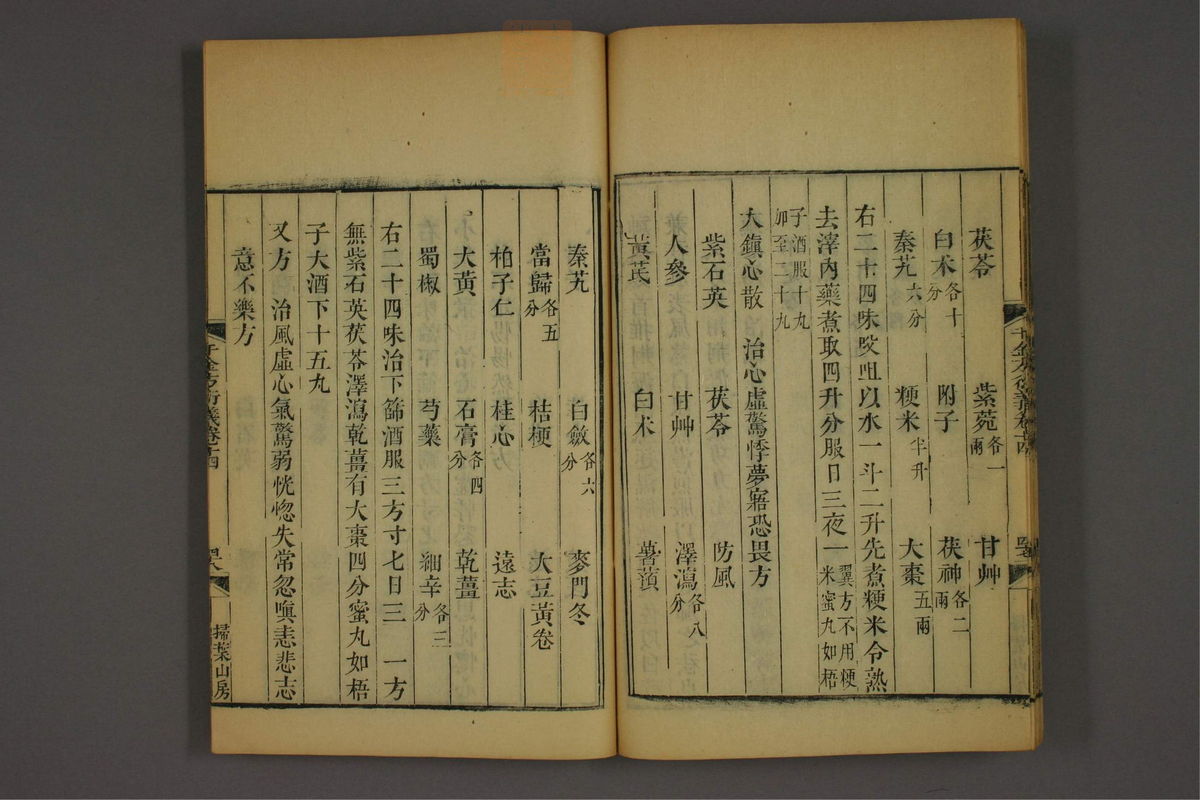 茯苓 紫菀各一兩 甘艸
白术各十分 附子 茯神各二兩
秦艽六分 粳米半升 大棗五兩
右二十四味㕮咀以水一斗二升先煮粳米令熟
去滓內藥煮取四升分服日三夜一翼方不用粳米蜜丸如梧
子酒服十丸加至二十丸
大鎮心散 治心虛驚悸夢寤恐畏方
紫石英 茯苓 防風
人參 甘艸 澤瀉各八分
黃芪 白术 薯蕷
秦艽 白斂各六分 麥門冬
當歸各五分 桔梗 大豆黃卷
柏子仁 桂心 遠志
大黃 石膏各四分 乾薑
蜀椒 芍藥 細辛各三分
右二十四味治下篩酒服三方寸七日三 一方
無紫石英茯苓澤瀉乾薑有大棗四分蜜丸如梧
子大酒下十五丸
又方 治風虛心氣驚弱恍惚失常忽嗔恚悲志
意不樂方
千金方衍義卷十四
掃葉山房